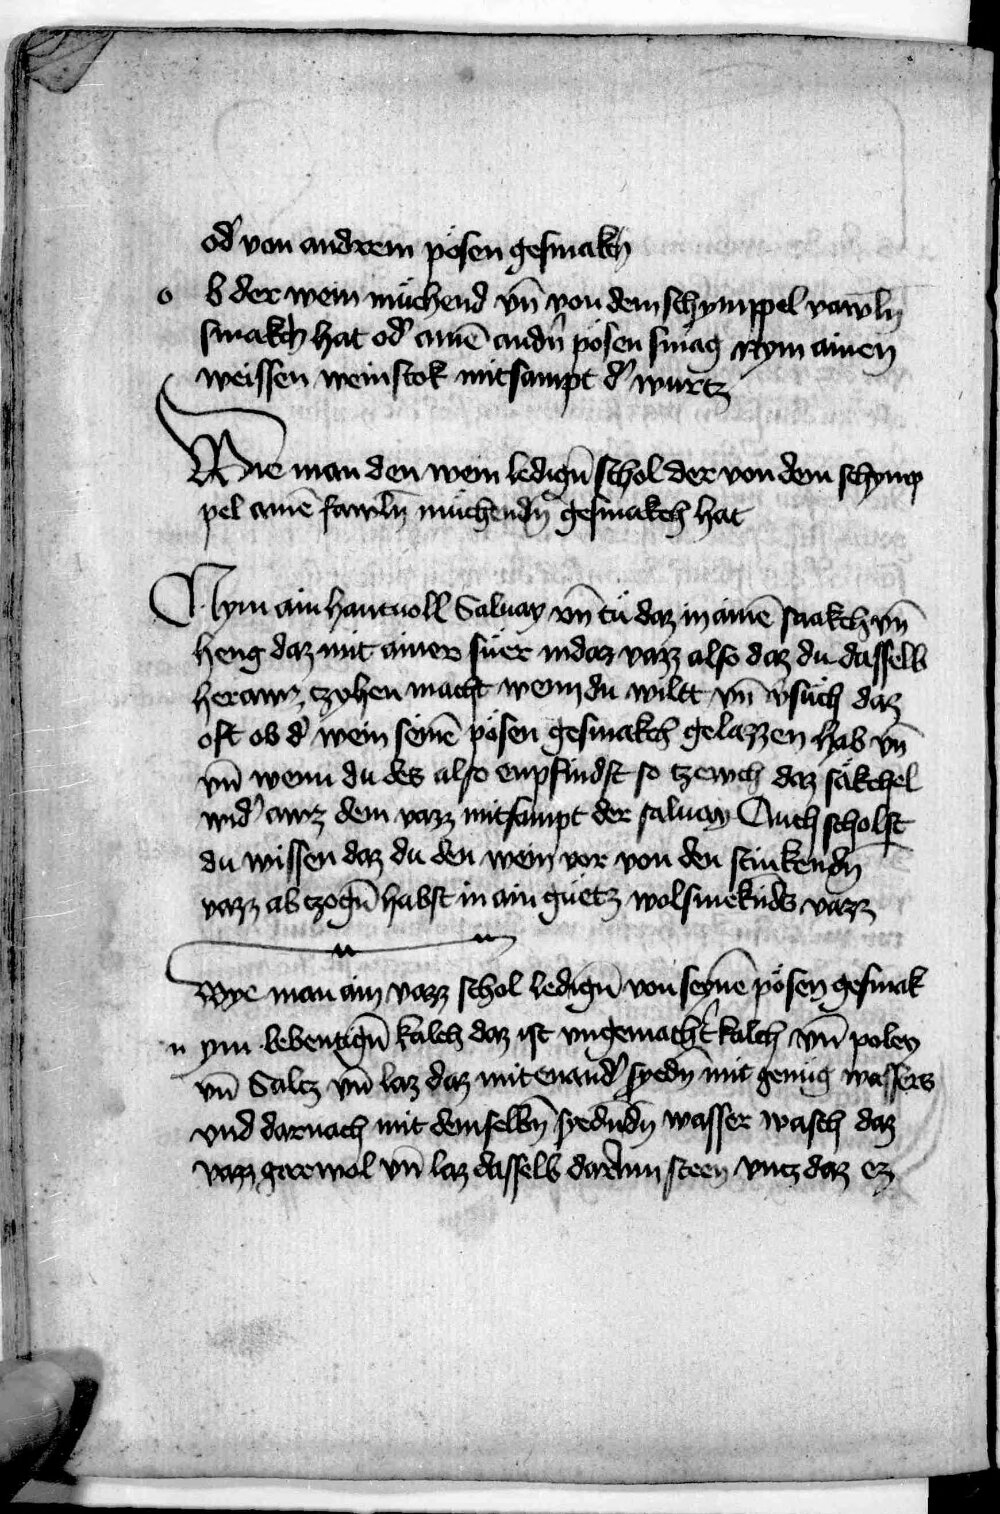 od' von andrem pösen gesmakch
o b der wein müchend vn̄ von dem schymppel vawln
smakch hat od' ainē andn̄ pösen smag Nym ainen
weissen weinstok mitsampt d' wurtz
Wie man den wein ledign̄ schol der von dem schymp
pel ainē fawln̄ müchendn̄ gesmakch hat
Nym ain hantuoll Saluay vn̄ tü daz in ainē saakch vn̄
heng daz mit ainer snüer in daz vazz also daz du dasselb
herawz tzyhen macht wenn du wiltt vn̄ v'süch daz
oft ob d' wein seinē pösen gesmakch gelazzen hab vn̄
vn̄ wenn du des also enpfindst so tzewch daz säkchel
wid' awz dem vazz mitsampt der saluay Auch scholst
du wissen daz du den wein vor von den stinkendn
vazz ab tzogn̄ habst in ain guetz wolsmekn̄ds vazz
Wye man ain vazz schol ledign̄ von seynē pösen gesmak
n ym lebentign̄ kalch daz ist vngemacht' kalch vn̄ poley
vn̄ Saltz vn̄ laz daz mitenand' syedn mit genüg wassers
vnd darnach mit demselbn̄ syedn̄dn̄ wasser wasch daz
vazz gar wol vn̄ laz dasselb darinn steen vntz daz ez